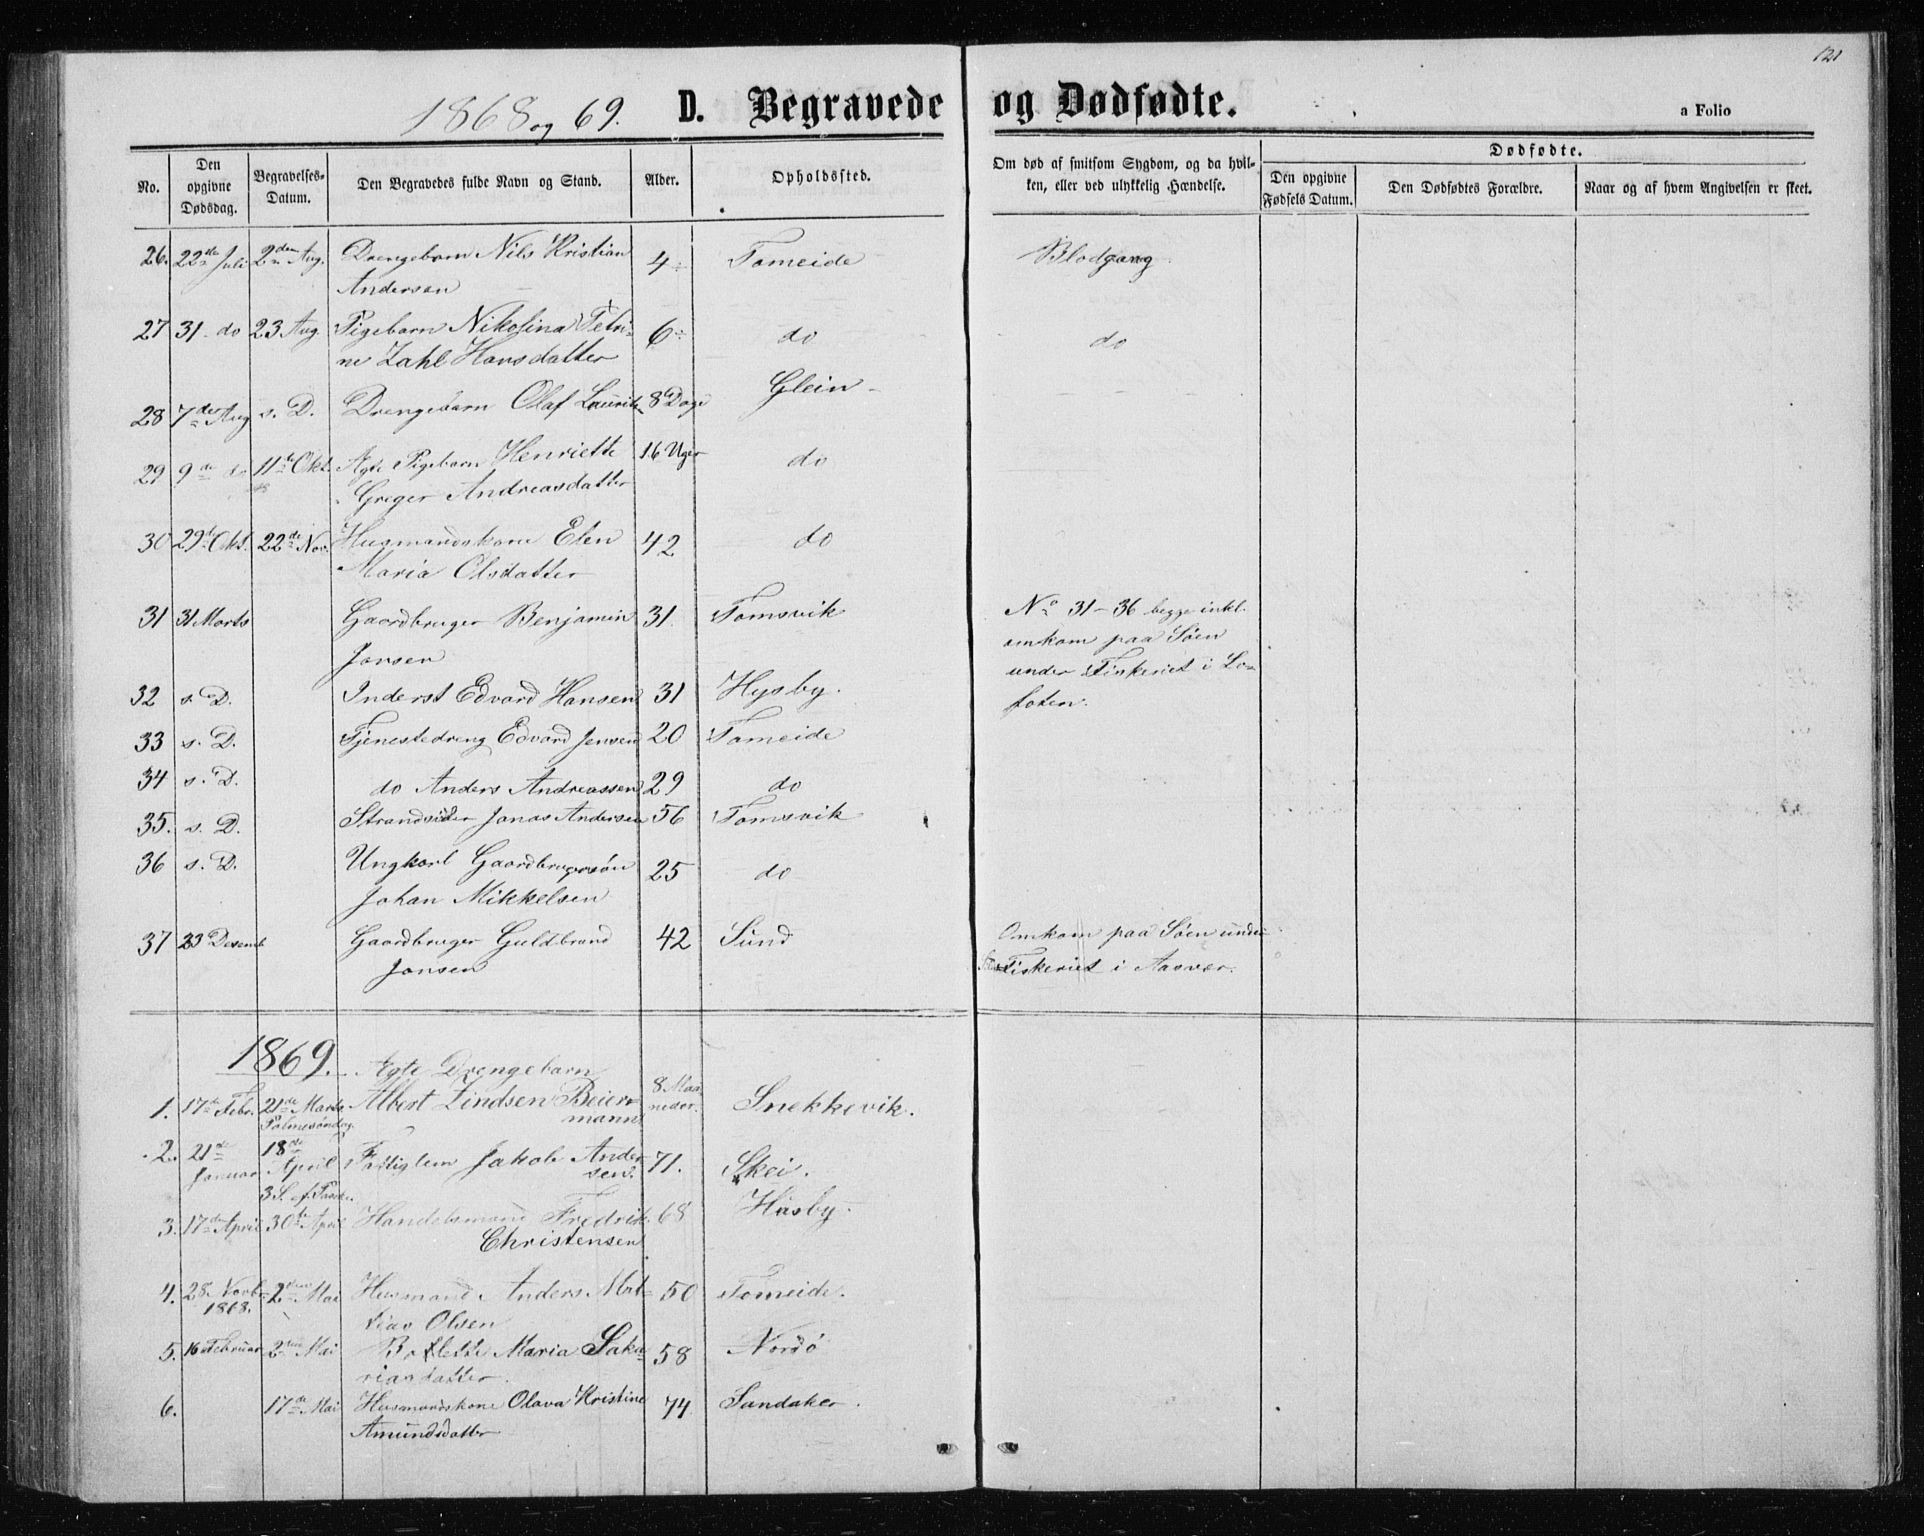 121
1868 og 69. D. Begravede og Dødfødte.
a Folio
No.
Den opgivne Dødsdag.
Begravelses-Datum.
Den Begravedes fulde Navn og Stand.
Alder.
Opholdssted.
Om død af smitsom Sygdom, og da hvil-
ken, eller ved ulykkelig Hændelse.
Dødfødte.
Den opgivne Fødsels Datum.
Den Dødfødtes Forældre.
Naar og af hvem Angivelsen er skeet.
26. 22de Juli 2den Aug. Drengebarn Nils Kristian 4 Tomeide Blodgang
Andersen
27 31 do 23 Aug. Pigebarn Nikolina Petri- 6 do do
ne Zahl Hansdatter
28 7de Aug s. D. Drengebarn Olaf Lauritz 8 Dage Glein
29 9de do 11te Okt. Ægte Pigebarn Henriette 16 Uger do
Greger Andreasdatter
30 29de Okt. 22de Nov. Husmandskone Elen 42 do
Maria Olsdatter
31 31 Marts Gaardbruger Benjamin 31 Tomsvik No 31-36 begge inkl.
Jonsen omkom paa Søen
under Fiskeriet i Lo-
32 s. D. Inderst Edvard Hansen 31 Hysby. foten.
33 s. D. Tjenestedreng Edvard Jensen 20 Tomeide
34 s. D. do Anders Andreassen 29 do
35. s. D. Strandsidder Jonas Andersen 56 Tomsvik
36 s. D. Ungkarl Gaardbrugersøn 25 do
Johan Mikkelsen
37 23 Desemb Gaardbruger Guldbrand 42 Sund Omkom paa Søen under
Jonsen Fiskeriet i Aasvær.
1869. Ægte Drengebarn
1. 17de Febr. 21de Marts Albert Lindsen Beier- 8 Maa- Snekkevik.
Palmesøndag mann neder.
2. 21de 18de Fattiglem Jakob Ander- 71. Skei.
Januar April sen.
3 S. ef. Paaske
3. 17de April 30te April Handelsmand Fredrik 68 Husby.
Christensen
4. 28 Novbr 2den Mai Husmand Anders Mat- 50 Tomeide.
1868. tias Olsen
5. 16 Februar 2den Mai Maria Saka- 58 Nordø
riasdatter.
6. 17de Mai Husmandskone Olava Kristine 74 Sandaker.
Amundsdatter